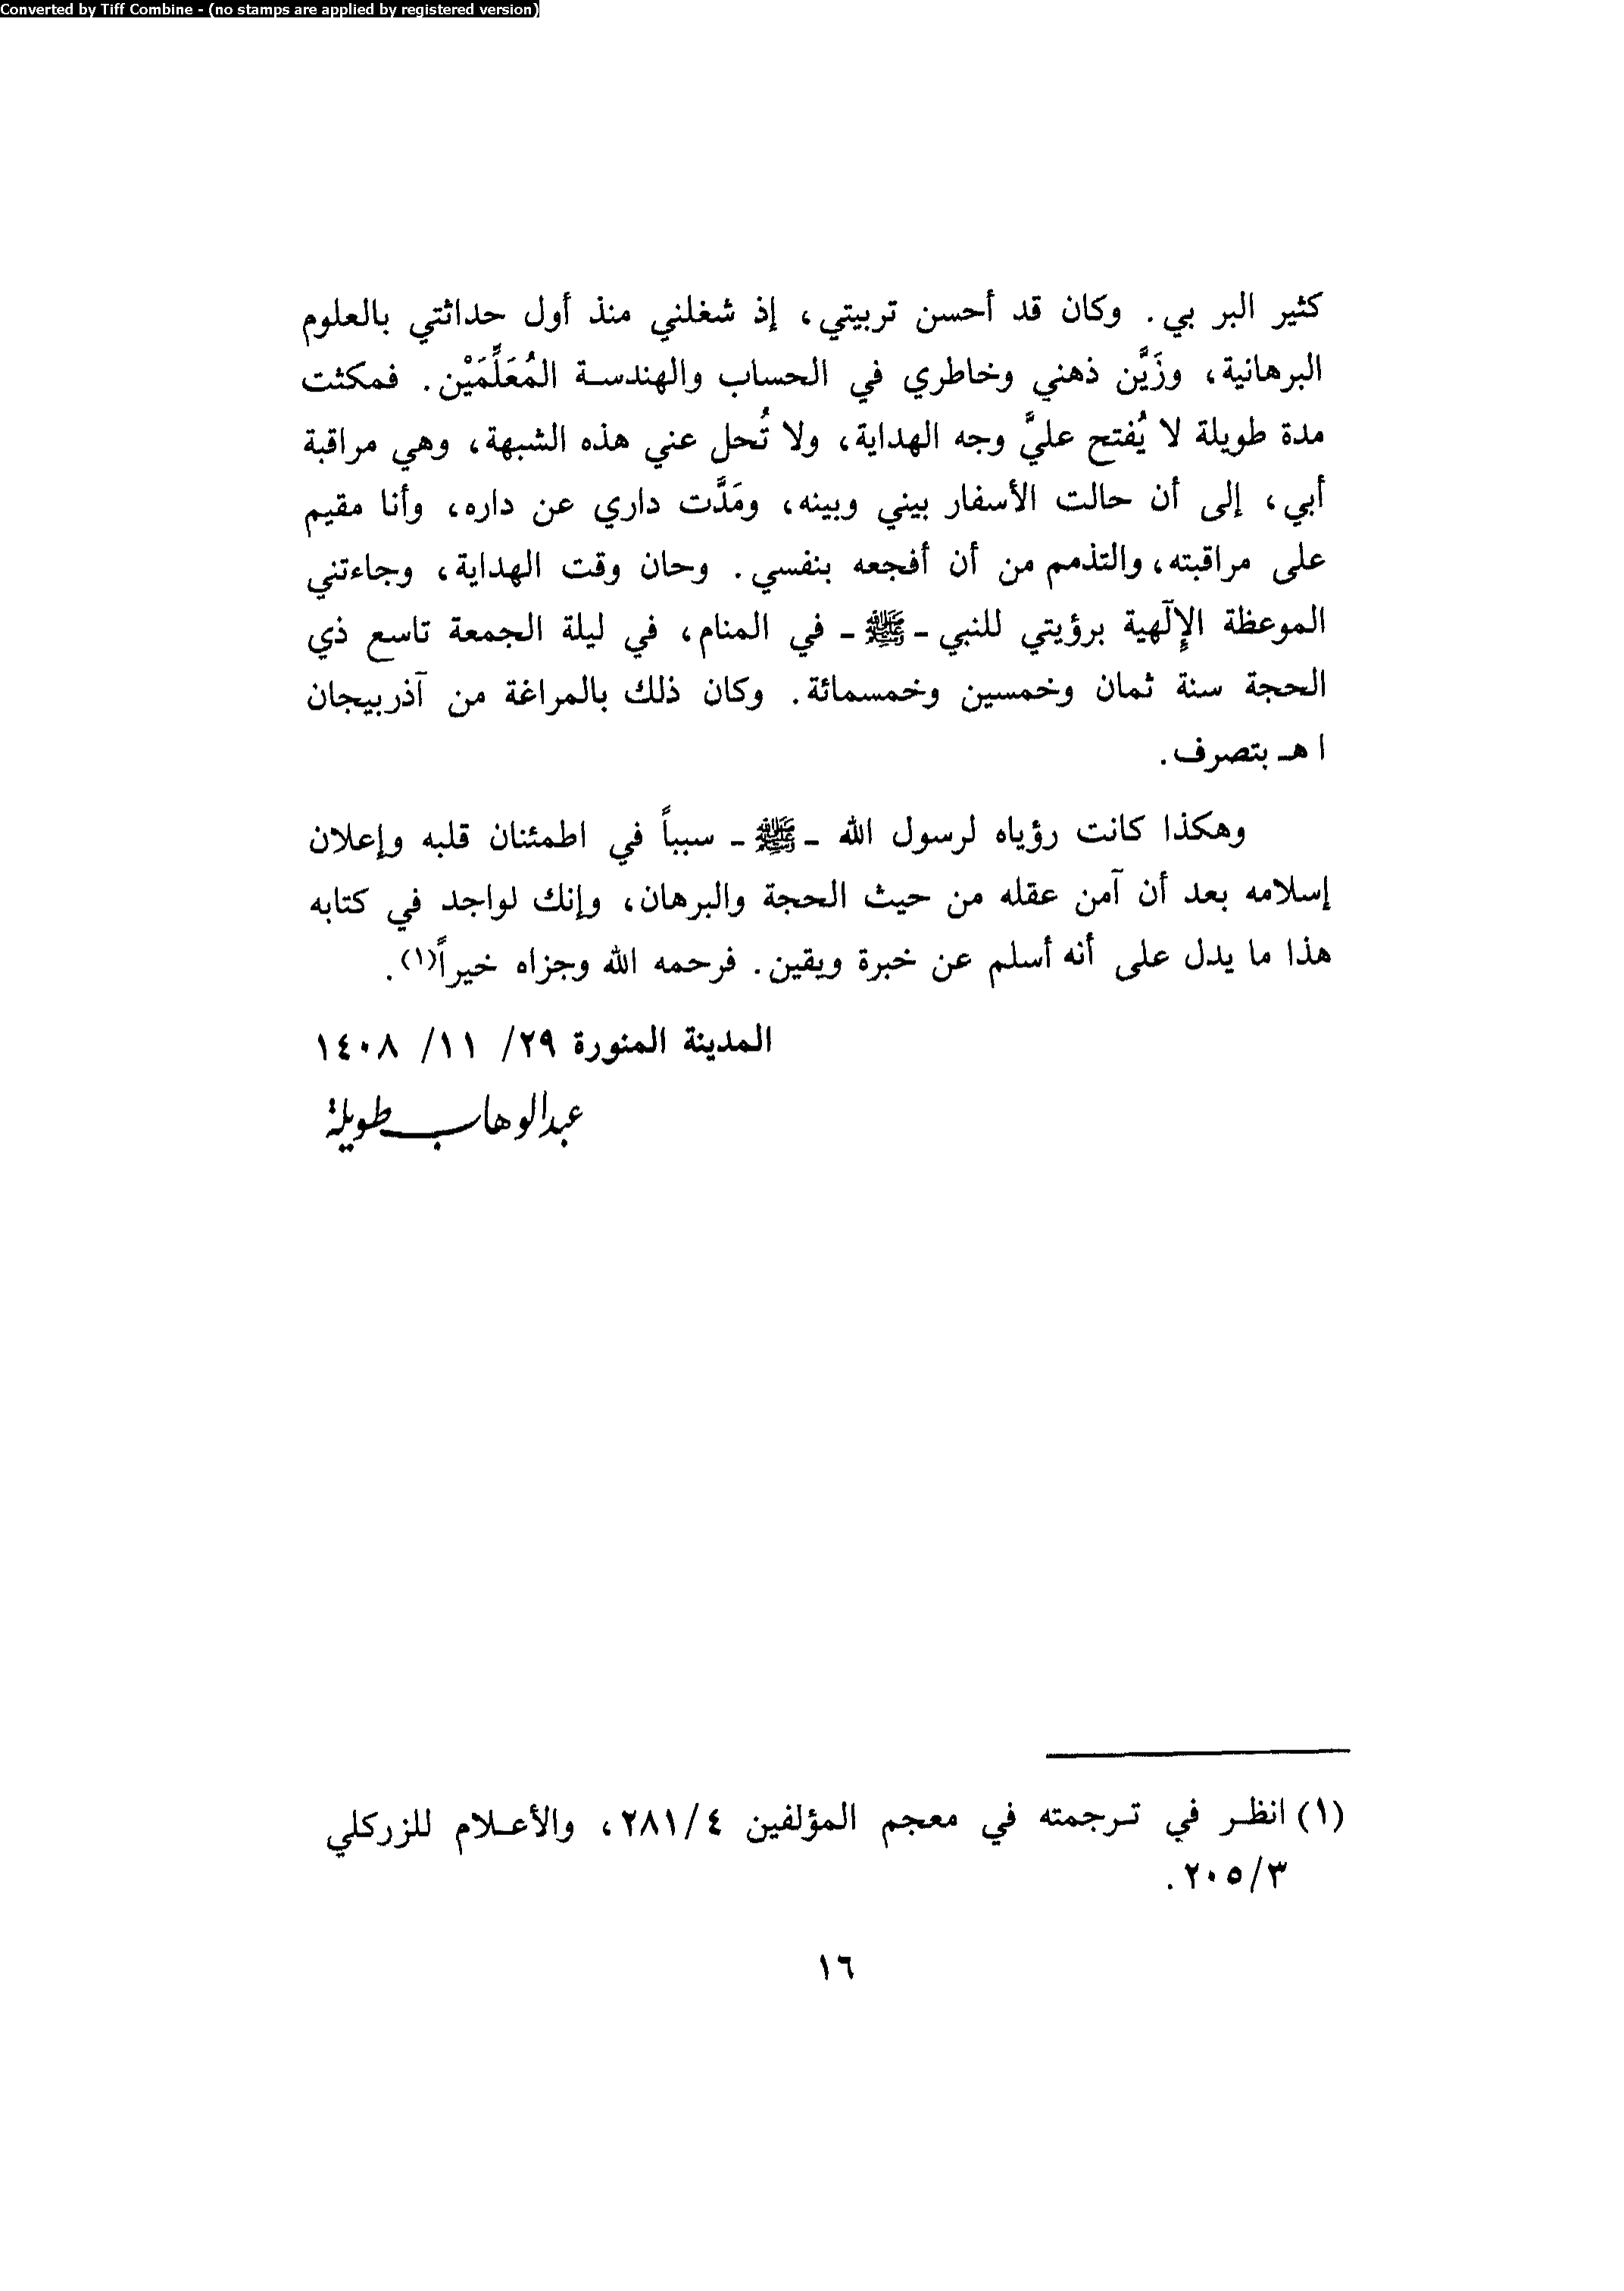 Converted by Tiff Combine - (no stamps are applied by registered version)
كثير البر بي. وكان قد أحسن تربيتي، إذ شغلني منذ أول حداثتي بالعلوم
البرهانية، وزَيَّن ذهني وخاطري في الحساب والهندسة المُعَلِّمَيْن. فمكثت
مدة طويلة لا يُفتح عليَّ وجه الهداية، ولا تُحل عني هذه الشبهة، وهي مراقبة
أبي، إلى أن حالت الأسفار بيني وبينه، ومَدَّت داري عن داره، وأنا مقيم
على مراقبته، والتذمم من أن أفجعه بنفسي. وحان وقت الهداية، وجاءتني
الموعظة الإلٓهية برؤيتي للنبي - ﷺ - في المنام، في ليلة الجمعة تاسع ذي
الحجة سنة ثمان وخمسين وخمسمائة. وكان ذلك بالمراغة من آذربيجان
ا هـ بتصرف.
وهكذا كانت رؤياه لرسول الله - ﷺ - سبباً في اطمئنان قلبه وإعلان
إسلامه بعد أن آمن عقله من حيث الحجة والبرهان، وإنك لواجد في كتابه
هذا ما يدل على أنه أسلم عن خبرة ويقين. فرحمه الله وجزاه خيراً(١).
المدينة المنورة ٢٩/ ١١/ ١٤٠٨
عبدالوهاب طويلة
(١) انظر في ترجمته في معجم المؤلفين ٢٨١/٤، والأعلام للزركلي
٢٠٥/٣.
١٦